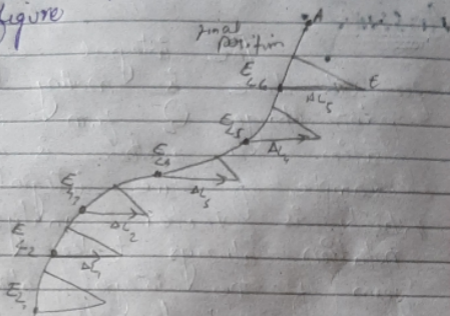 figure
A
final
position
E
L6
E
ΔL5
E
L5
ΔL4
E
L4
ΔL3
E
L3
ΔL2
E
L2
ΔL1
E
L1